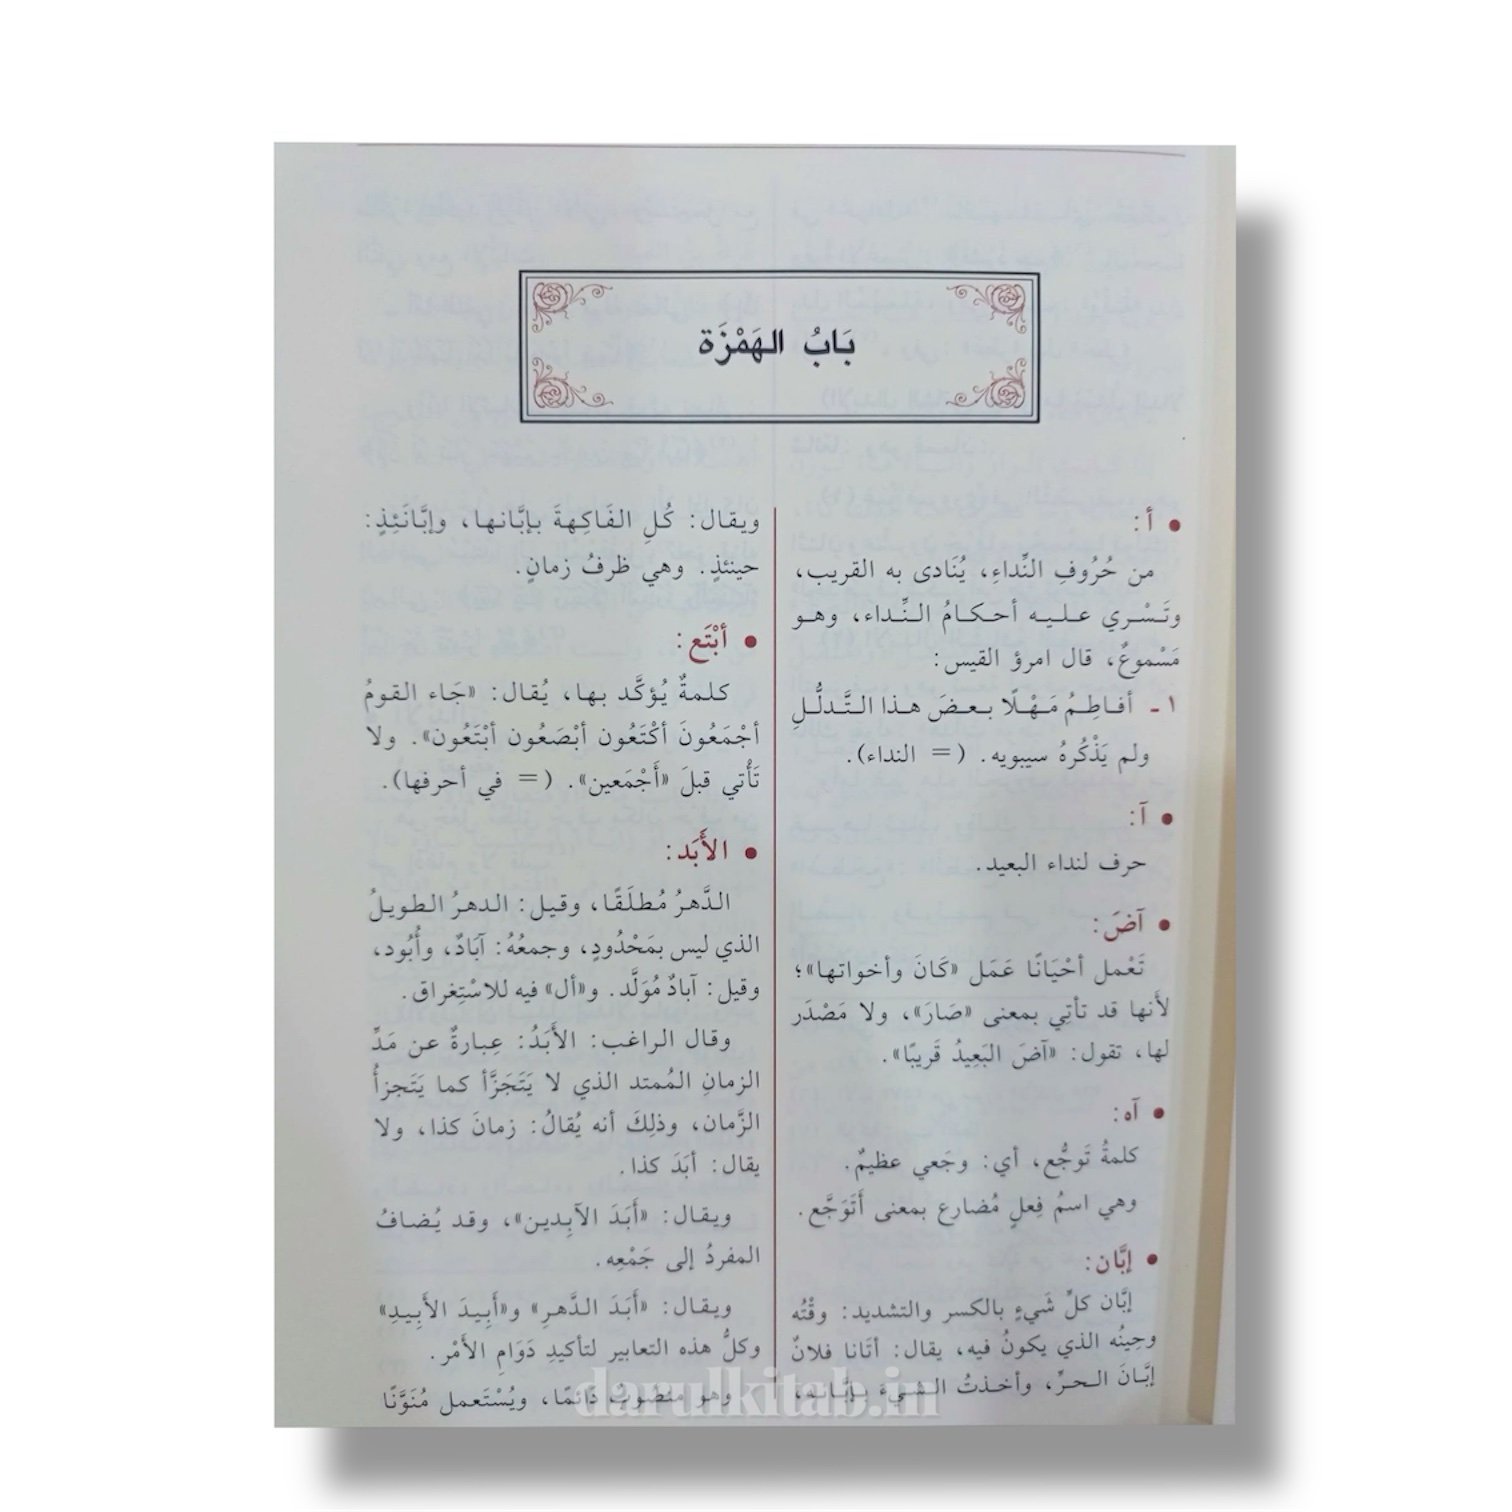 بَابُ الهَمْزَة
• أ:
من حُرُوفِ النِّداءِ، يُنَادى به القريب،
وتَسْري عليه أحكامُ النِّداء، وهو
مَسْموعٌ، قال امرؤ القيس:
١ ـ أفاطِمُ مَهْلًا بعضَ هذا التَّدلُّلِ
ولم يَذْكُرهُ سيبويه. (= النداء).
• آ:
حرف لنداء البعيد.
• آضَ:
تَعْمل أحْيَانًا عَمَل «كَانَ وأخواتها»؛
لأنها قد تأتِي بمعنى «صَارَ»، ولا مَصْدَر
لها، تقول: «آضَ البَعِيدُ قَريبًا».
• آه:
كلمةُ تَوجُّع، أي: وجَعي عظيمٌ.
وهي اسمُ فِعلٍ مُضارع بمعنى أتَوَجَّع.
• إبَّان:
إبَّان كلِّ شَيءٍ بالكسر والتشديد: وقْتُه
وحِينُه الذي يكونُ فيه، يقال: أتَانا فلانٌ
إبَّانَ الحرِّ، وأخذتُ الشيءَ بإبَّانه،
ويقال: كُلِ الفَاكِهةَ بإبَّانها، وإبَّانَئِذٍ:
حينئذٍ. وهي ظرفُ زمانٍ.
• أبْتَع:
كلمةٌ يُؤكَّد بها، يُقال: «جَاء القومُ
أجْمَعُونَ أكْتَعُون أبْصَعُون أبْتَعُون». ولا
تَأْتي قبلَ «أَجْمَعين». (= في أحرفها).
• الأَبَد:
الدَّهرُ مُطلَقًا، وقيل: الدهرُ الطويلُ
الذي ليس بمَحْدُودٍ، وجمعُهُ: آبَادٌ، وأُبُود،
وقيل: آبادٌ مُوَلَّد. و«أل» فيه للاسْتِغراق.
وقال الراغب: الأبَدُ: عِبارةٌ عن مَدِّ
الزمانِ المُمتد الذي لا يَتَجَزَّأ كما يَتَجزأُ
الزَّمان، وذلِكَ أنه يُقالُ: زمانَ كذا، ولا
يقال: أبَدَ كذا.
ويقال: «أَبَدَ الآبِدين»، وقد يُضافُ
المفردُ إلى جَمْعِه.
ويقال: «أَبَدَ الدَّهرِ» و«أَبِيدَ الأَبِيدِ»
وكلُّ هذه التعابير لتأكيدِ دَوَامِ الأَمْر.
وهو منصُوبٌ دَائمًا، ويُسْتَعمل مُنَوَّنًا
darulkitab.in